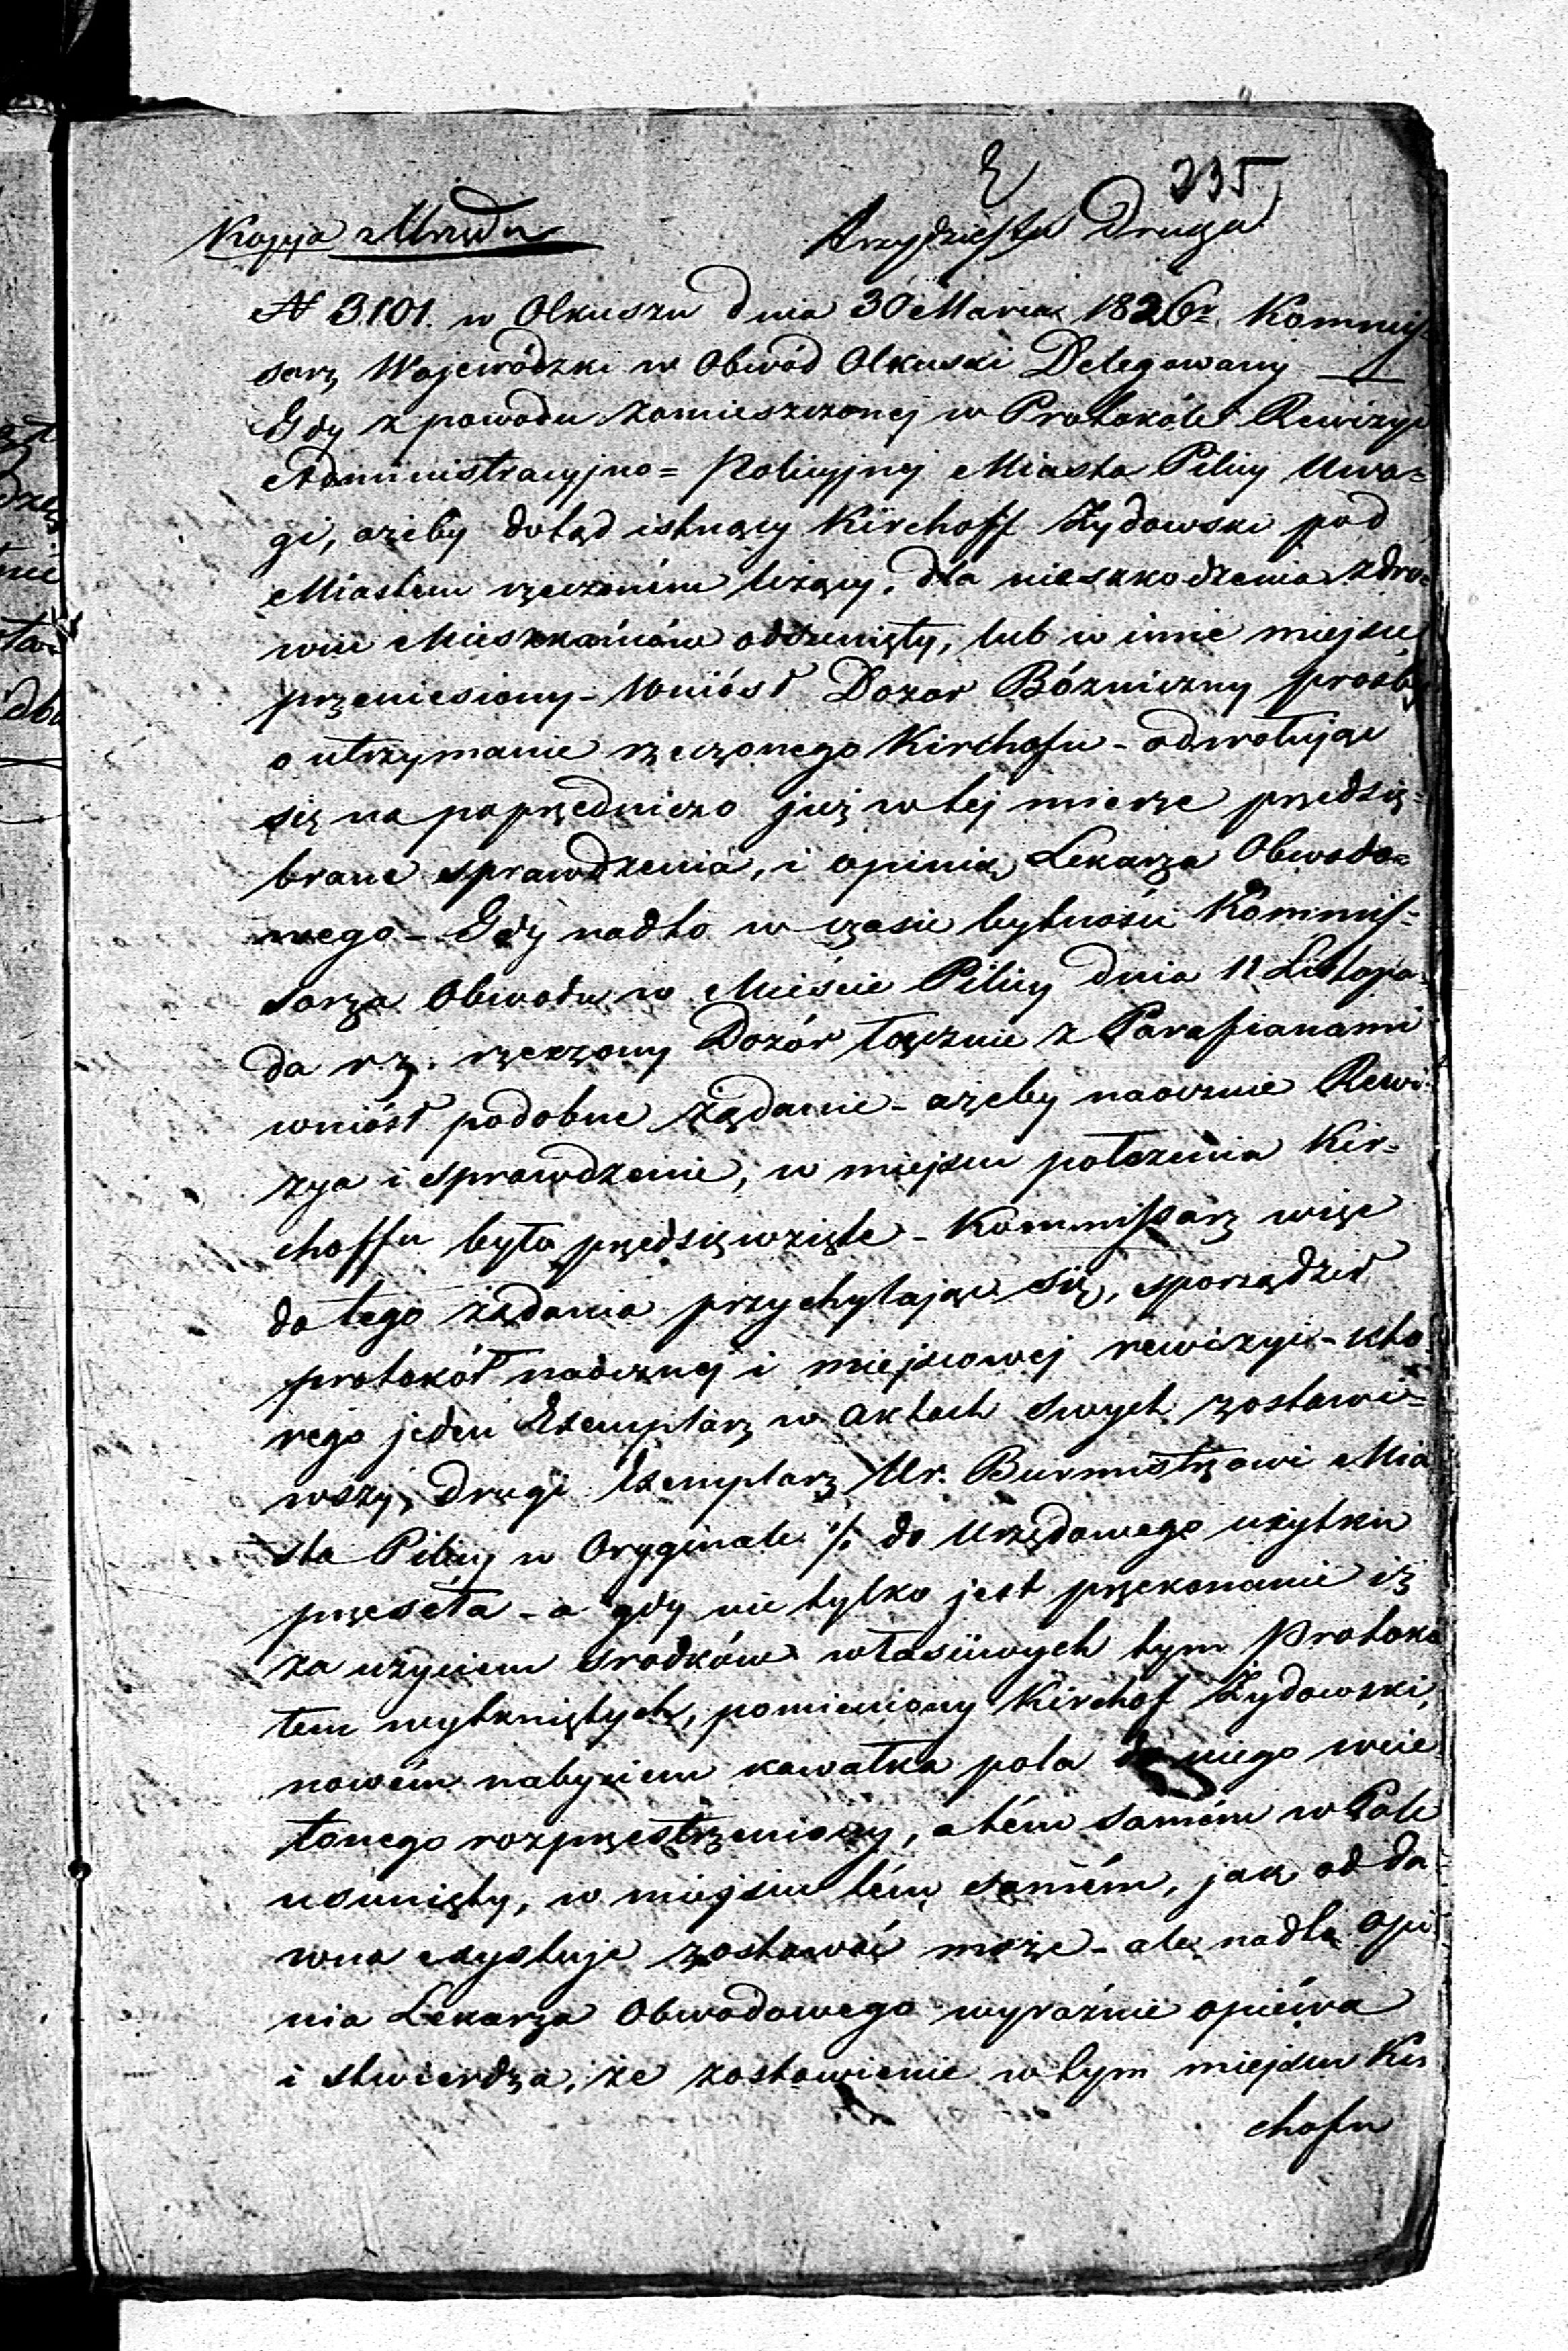 E 235
Kopja z Urzędu Trzydziesta Druga
N 3101. w Olkuszu dnia 30 Marca 1826 r. Kommis-
sarz Wojewódzki w Obwód Olkuski Delegowany —
Gdy z powodu zamieszczonej w Protokóle Rewizyi
Administracyjno= Policyjnej Miasta Pilicy Uwa=
gi, ażeby dotąd istnący Kirchoff Żydowski pod
Miastem rzeczonem leżący, dla nieszkodzenia zdro=
wiu Mieszkańców odsunięty, lub w inne miejsce
przeniesiony - Wniósł Dozor Bózniczny prośbę
o utrzymanie rzeczonego Kirchofu - odwołując
się na poprzedniczo już w tej mierze przedsię=
brane sprawdzenia, i opinią Lekarza Obwodo=
wego - Gdy nadto w czasie bytności Kommis=
sarza Obwodu w Mieście Pilicy dnia 11 Listopa=
da r. z. rzeczony Dozór łącznie z Parafianami
wniósł podobne żądanie - ażeby naocznie Rewi=
zya i sprawdzenie, w miejscu położenia Kir=
choffu było przedsięwzięte - Kommissarz więc
do tego żądania przychylając się, sporządził
protokół naocznej i miejscowej rewizyi - któ
rego jeden Exemplarz w aktach swych zostawi=
wszy, drugi Exemplarz Ur. Burmistrzowi Mia
sta Pilicy w Oryginale /. do Urzędowego użytku
przeséła - a gdy nie tylko jest przekonanie iż
za użyciem srodków właściwych tym Protoko
łem wytkniętych, pomieniony Kirchof Żydowski,
nowém nabyciem kawałka pola do niego wcie
lonego rozprzestrzeniony, a tém samém w Pole
usunięty, w miejscu tém samém, jak od da=
wna exystuje zostawać może - ale nadto opi
nia Lekarza Obwodowego wyraźnie opiéwa
i stwierdza, że zostawienie w tym miejscu Kir
chofu